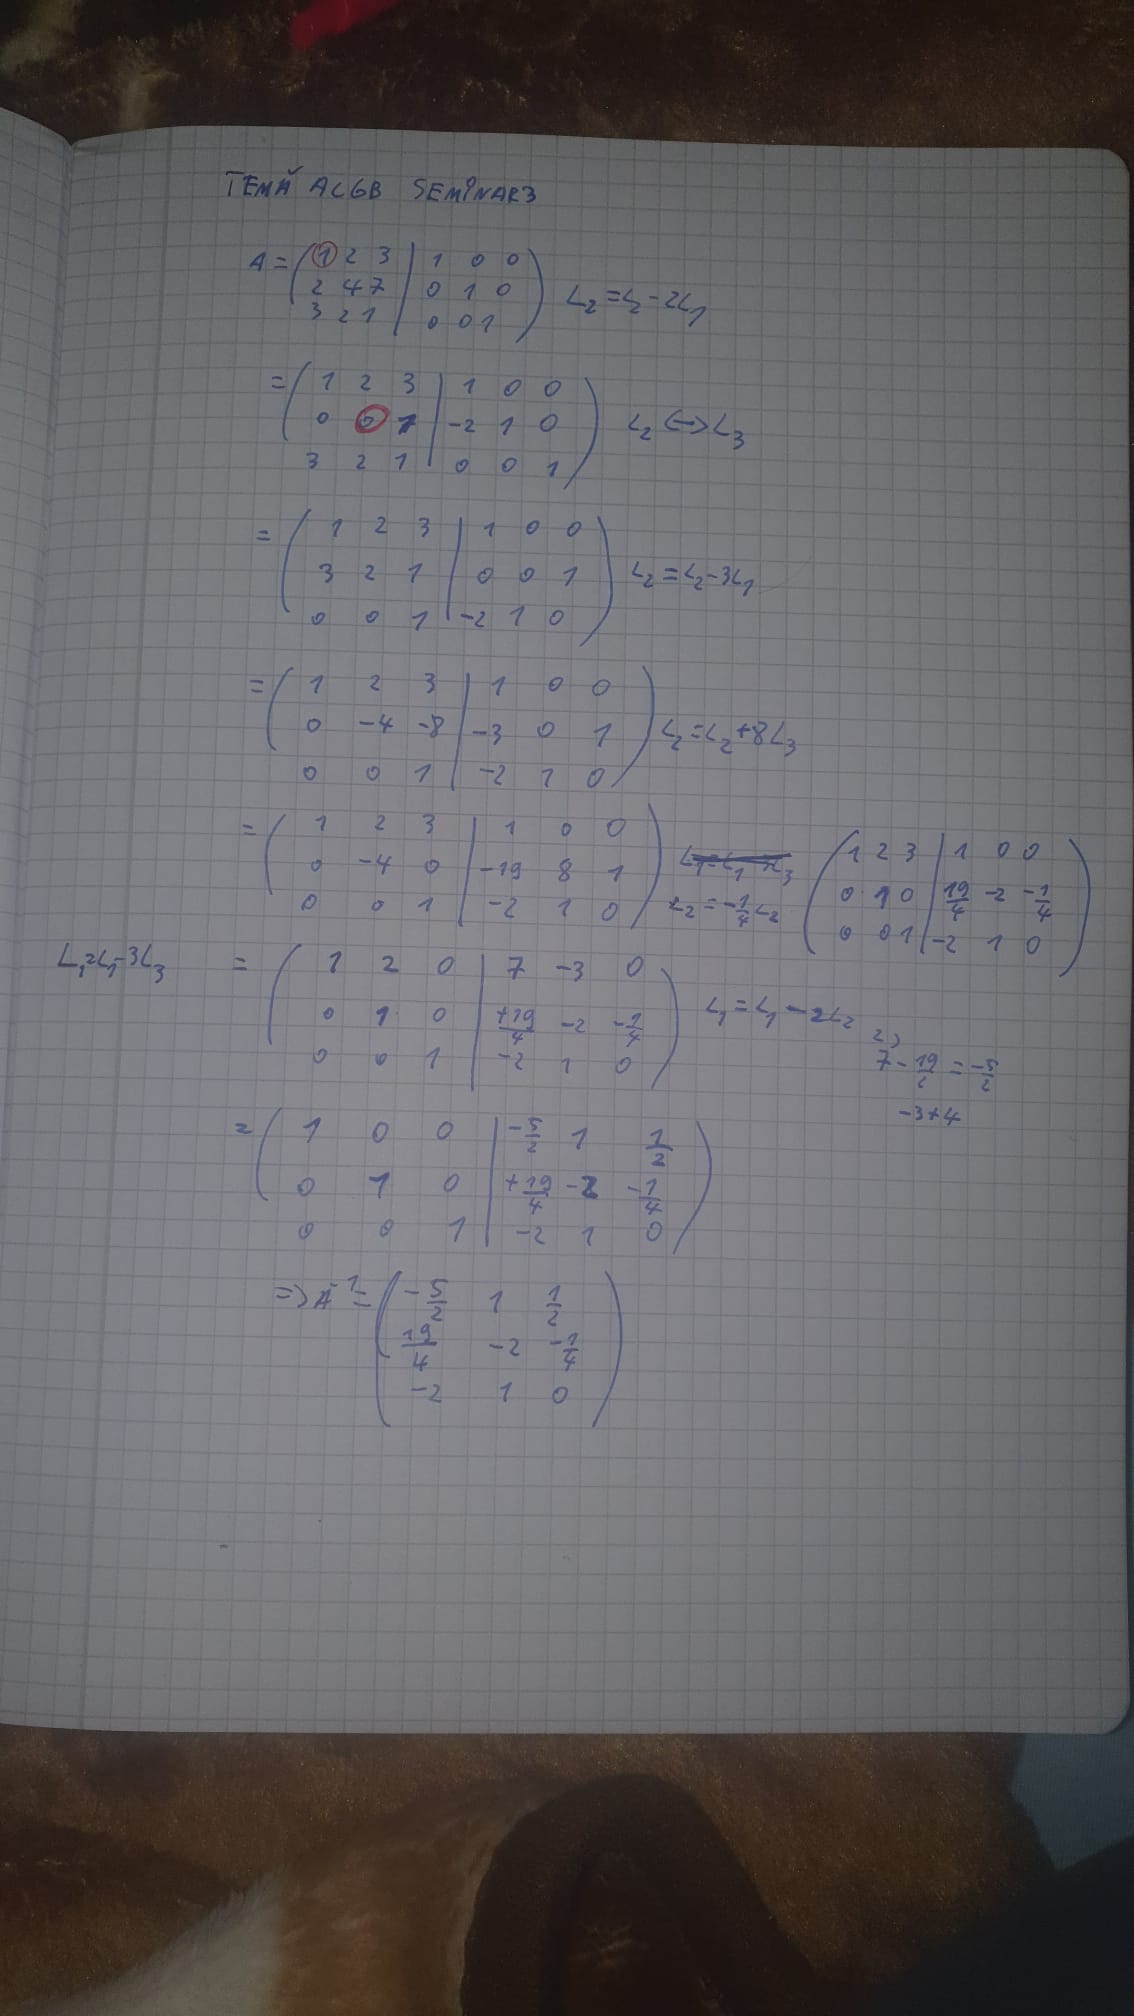 TEMĂ ALGB SEMINAR3
A = ( 1 2 3 | 1 0 0
2 4 7 | 0 1 0
3 2 1 | 0 0 1 ) L2 = L2 - 2L1
= ( 1 2 3 | 1 0 0
0 0 1 | -2 1 0
3 2 1 | 0 0 1 ) L2 <-> L3
= ( 1 2 3 | 1 0 0
3 2 1 | 0 0 1
0 0 1 | -2 1 0 ) L2 = L2 - 3L1
= ( 1 2 3 | 1 0 0
0 -4 -8 | -3 0 1
0 0 1 | -2 1 0 ) L2 = L2 + 8L3
= ( 1 2 3 | 1 0 0
0 -4 0 | -19 8 1
0 0 1 | -2 1 0 )
L2 = -1/4 L2
( 1 2 3 | 1 0 0
0 1 0 | 19/4 -2 -1/4
0 0 1 | -2 1 0 )
L1 = L1 - 3L3
= ( 1 2 0 | 7 -3 0
0 1 0 | +19/4 -2 -1/4
0 0 1 | -2 1 0 ) L1 = L1 - 2L2
2)
7 - 19/2 = -5/2
-3+4
= ( 1 0 0 | -5/2 1 1/2
0 1 0 | +19/4 -2 -1/4
0 0 1 | -2 1 0 )
=> A^-1 = ( -5/2 1 1/2
19/4 -2 -1/4
-2 1 0 )